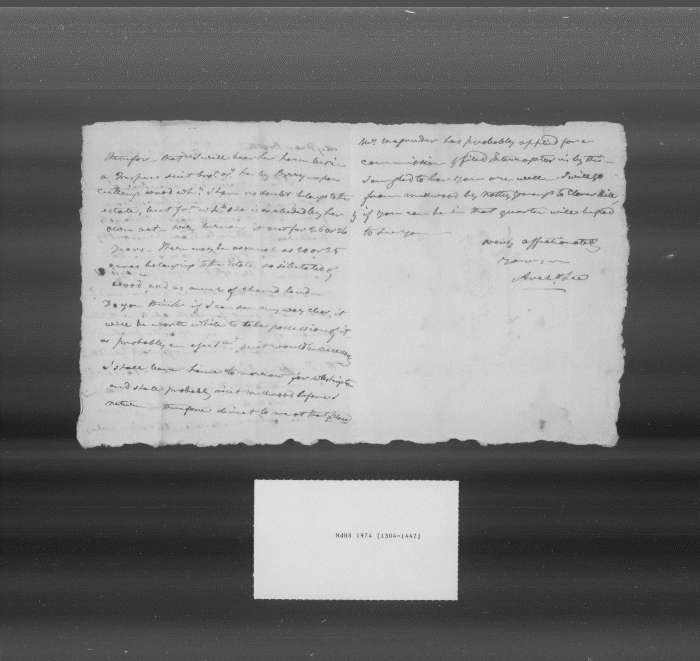 therefor that I will bear her harmless in
a Trespass suit brot. agt. her by Berry upon
cutting wood wh: I have no doubt belongs to the
estate, but from wh: she is excluded by her
own act viz, turning it out for 25 or 26
years. There may be as much as 20 or 25
acres belonging to the Estate so destitute of
wood, and as much of cleared land—
Do you think if I can see my way clear, it
will be worth while to take possession of it
as probably an eject mt. suit would be necessary
I shall leave home tomorrow for Washington
and shall probably visit Medwood before I
return therefore direct to me at that place
Mrs Magruder has probably applied for a
commission & filed Interrogatories by this—
I am glad to hear you are well. I will go
from Medwood by Notley Youngs to Clover Hill
& if you can be in that quarter will be glad
to see you
very affectionately
Yours
Archd. Lee
MdHR 1974 [1304-1447]